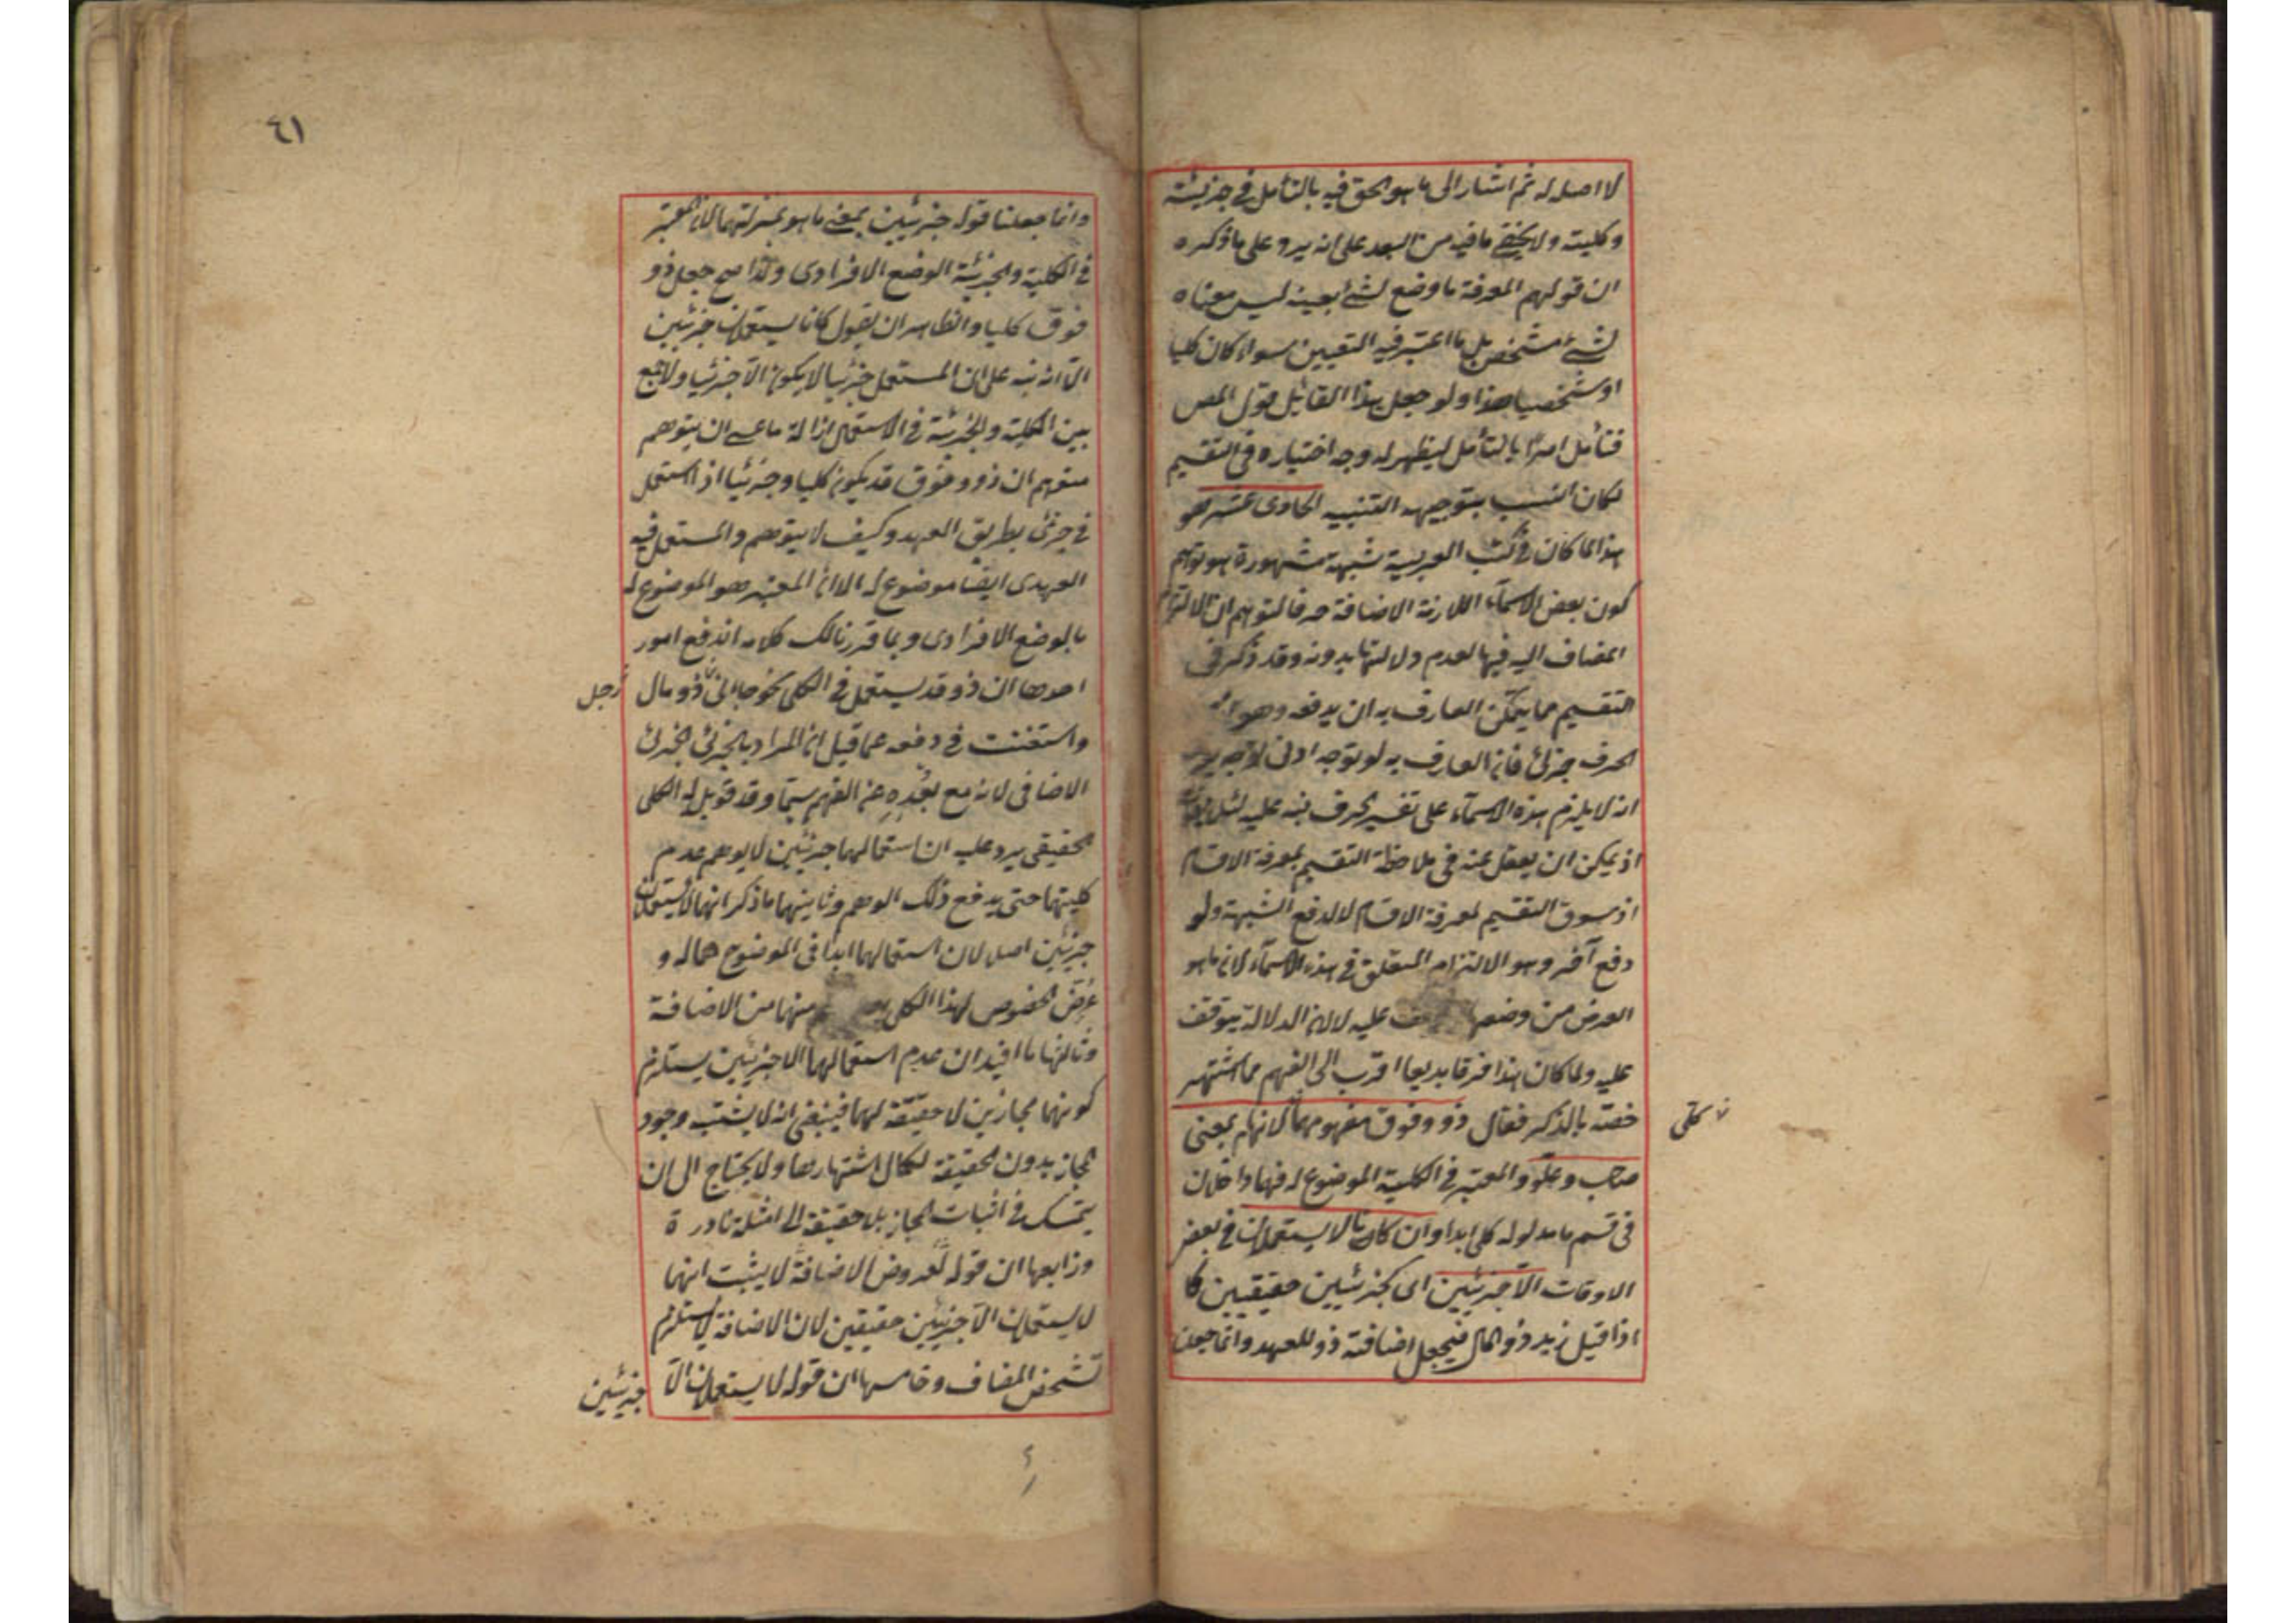 لا اصل له ثم اشار الى ما هو الحق فيه بالتأمل فى جزئيته
وكليته ولا يخفى ما فيه من البعد على انه يرد على ما ذكره
ان قولهم المعرفة ما وضع لشئ بعينه ليس معناه
لشئ مشخص بل ما اعتبر فيه التعيين سواء كان كليا
او شخصيا هذا ولو جعل هذا القائل قول المص
فتأمل امرا بالتأمل ليظهر له وجه اختياره فى التقسيم
لكان انسب بتوجيه التنبيه الحادى عشر هو
هذا لما كان فى كتب العربية شبهة مشهورة هو توهم
كون بعض الاسماء اللازمة الاضافة حرفا لتوهم ان الالتزام
المضاف اليه فيها لعدم دلالتها بدونه وقد ذكر فى
التقسيم مما يتمكن العارف به ان يدفعه وهو ان
الحرف جزئى فان العارف به لو توجه ادنى توجه
انه لا يلزم هذه الاسماء على تفسير الحرف نبه عليه لئلا
اذ يمكن ان يغفل عنه فى ملاحظة التقسيم لمعرفة الاقسام
اذ سوق التقسيم لمعرفة الاقسام لا لدفع الشبهة ولو
دفع آخر وهو الالتزام المتعلق فى هذه الاسماء لان ما هو
الغرض من وضعها عليه لا لان الدلالة يتوقف
عليه ولما كان هذا فرقا بديعا اقرب الى الفهم مما اشتهر
خصه بالذكر فقال ذو وفوق مفهومهما لانهما بمعنى
كلى
صاحب وعلو والمعتبر فى الكلية الموضوع له فهما داخلان
فى قسم ما مدلوله كلى ابدا وان كانا لا يستعملان فى بعض
الاوقات الا جزئيين اى كجزئيين حقيقيين كما
اذا قيل زيد ذو المال فيجعل اضافة ذو للعهد وانما جعلنا
٤١
وانما جعلنا قوله جزئيين بمعنى ما هو بمنزلتهما لان المعتبر
فى الكلية والجزئية الوضع الافرادى ولذا صح جعل ذو
فوق كليا والظاهر ان يقول كانا يستعملان جزئيين
الا انه نبه على ان المستعمل جزئيا لا يكون الا جزئيا ولا جمع
بين الكلية والجزئية فى الاستعمال ازالة ما عسى ان يتوهم
متوهم ان ذو وفوق قد يكون كليا وجزئيا اذ استعمل
فى جزئى بطريق العهد وكيف لا يتوهم والمستعمل فيه
العهدى ايضا موضوع له الا ان المعتبر هو الموضوع له
بالوضع الافرادى وبما قررنا لك كلامه اندفع امور
احدها ان ذو قد يستعمل فى الكلى نحو جاءنى ذو مال
رجل
واستغنت فى دفعه عما قيل ان المراد بالجزئى الجزئى
الاضافى لانه مع بعده عن الفهم سيما وقد قوبل له الكلى
الحقيقى يرد عليه ان استعمالهما جزئيين لا يوهم عدم
كليتهما حتى يدفع ذلك الوهم وثانيهما ما ذكر انهما لا يستعملان
جزئيين اصلا لان استعمالهما ابدا فى الموضوع هما له و
عرض الخصوص لهذا الكلى منهما من الاضافة
وثالثها ما افيد ان عدم استعمالهما الا جزئيين يستلزم
كونهما مجازين لا حقيقة لهما فينبغى ان لا يشتبه وجود
المجاز بدون الحقيقة لكمال اشتهارها ولا يحتاج الى ان
يتمسك فى اثبات المجاز بلا حقيقة الى امثلة نادرة
ورابعها ان قوله لعروض الاضافة لا يثبت انهما
لا يستعملان الا جزئيين حقيقين لان الاضافة لا تستلزم
تشخص المضاف وخامسها ان قوله لا يستعملان الا
جزئيين